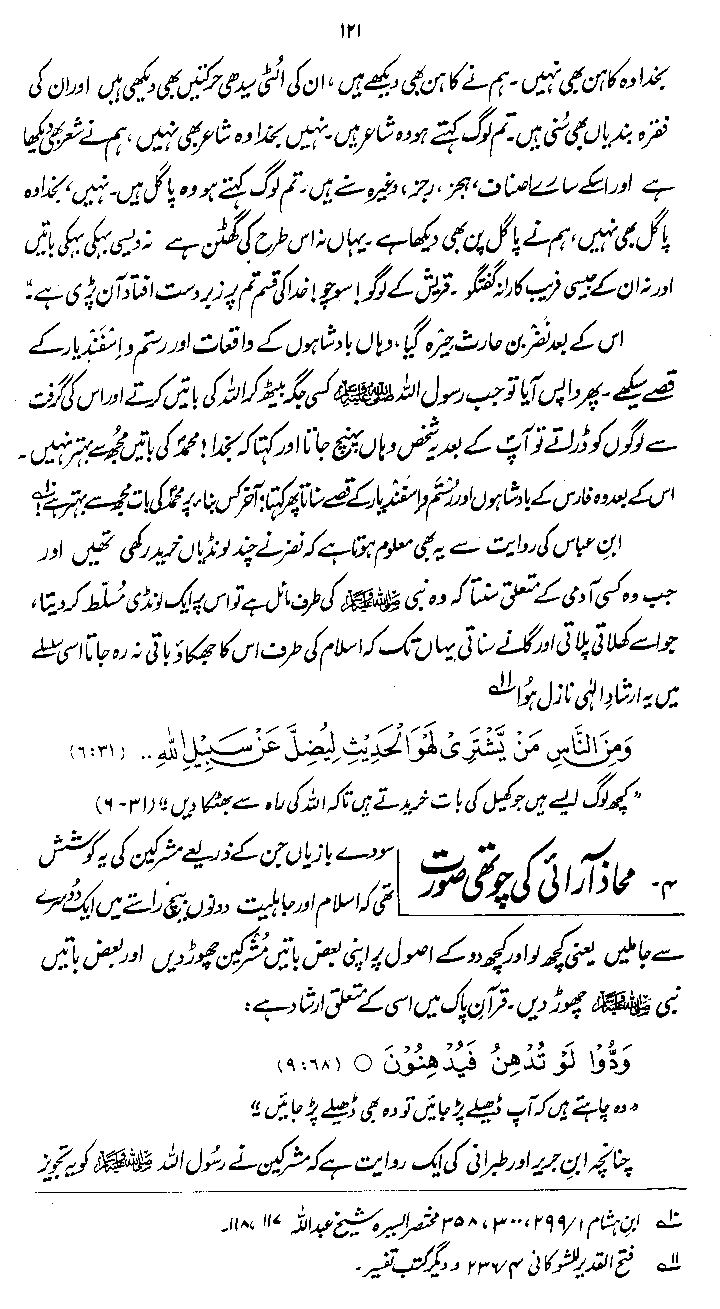 ۱۲۱
بخدا وہ کاہن بھی نہیں۔ ہم نے کاہن بھی دیکھے ہیں، ان کی الٹی سیدھی حرکتیں بھی دیکھی ہیں اور ان کی
فقرہ بندیاں بھی سُنی ہیں۔ تم لوگ کہتے ہو وہ شاعر ہیں۔ نہیں بخدا وہ شاعر بھی نہیں، ہم نے شعر بھی دیکھا
ہے اور اسکے سارے اصناف، ہجز، رجز، وغیرہ سنے ہیں۔ تم لوگ کہتے ہو وہ پاگل ہیں۔ نہیں، بخدا وہ
پاگل بھی نہیں، ہم نے پاگل پن بھی دیکھا ہے۔ یہاں نہ اس طرح کی گھٹن ہے نہ ویسی بہکی بہکی باتیں
اور نہ ان کے جیسی فریب کارانہ گفتگو۔ قریش کے لوگو! سوچو! خدا کی قسم تم پر زبردست افتاد آن پڑی ہے۔“
اس کے بعد نضر بن حارث حیرہ گیا، وہاں بادشاہوں کے واقعات اور رستم و اِسفَندِیار کے
قصے سیکھے۔ پھر واپس آیا تو جب رسول اللہ ﷺ کسی جگہ بیٹھ کر اللہ کی باتیں کرتے اور اس کی گرفت
سے لوگوں کو ڈراتے تو آپؐ کے بعد یہ شخص وہاں پہنچ جاتا اور کہتا کہ بخدا! محمدؐ کی باتیں مجھ سے بہتر نہیں۔
اس کے بعد وہ فارس کے بادشاہوں اور رُستم و اِسفندیار کے قصے سناتا پھر کہتا: آخر کس بناء پر محمدؐ کی بات مجھ سے بہتر ہے! ۱۰ؔ
ابنِ عباس کی روایت سے یہ بھی معلوم ہوتا ہے کہ نضر نے چند لونڈیاں خرید رکھی تھیں اور
جب وہ کسی آدمی کے متعلق سنتا کہ وہ نبی ﷺ کی طرف مائل ہے تو اس پر ایک لونڈی مُسلّط کر دیتا،
جو اسے کھلاتی پلاتی اور گانے سناتی یہاں تک کہ اسلام کی طرف اس کا جھکاؤ باقی نہ رہ جاتا اسی سلسلے
میں یہ ارشادِ الٰہی نازل ہُوا ۱۱ؔ
وَمِنَ النَّاسِ مَنْ يَّشْتَرِىْ لَهْوَ الْحَدِيْثِ لِيُضِلَّ عَنْ سَبِيْلِ اللّٰهِ .. (۶:۳۱)
”کچھ لوگ ایسے ہیں جو کھیل کی بات خریدتے ہیں تاکہ اللہ کی راہ سے بھٹکا دیں“ (۳۱-۶)
۴- محاذ آرائی کی چوتھی صُورت
سودے بازیاں جن کے ذریعے مشرکین کی یہ کوشش
تھی کہ اسلام اور جاہلیت دونوں بیچ راستے میں ایک دوسرے
سے جا ملیں یعنی کچھ لو اور کچھ دو کے اصول پر اپنی بعض باتیں مُشرکین چھوڑ دیں اور بعض باتیں
نبی ﷺ چھوڑ دیں۔ قرآنِ پاک میں اسی کے متعلق ارشاد ہے:
وَدُّوْا لَوْ تُدْهِنُ فَيُدْهِنُوْنَ ○ (۹:۶۸)
”وہ چاہتے ہیں کہ آپ ڈھیلے پڑ جائیں تو وہ بھی ڈھیلے پڑ جائیں“
چنانچہ ابنِ جریر اور طبرانی کی ایک روایت ہے کہ مشرکین نے رسُول اللہ ﷺ کو یہ تجویز
۱۰ؔ ابنِ ہشام ۲۹۹/۱، ۳۰۰، ۳۵۸ مختصر السیرہ شیخ عبداللہ ۱۱۷، ۱۱۸۔
۱۱ؔ فتح القدیر للشوکانی ۲۳۶/۴ و دیگر کتب تفسیر۔